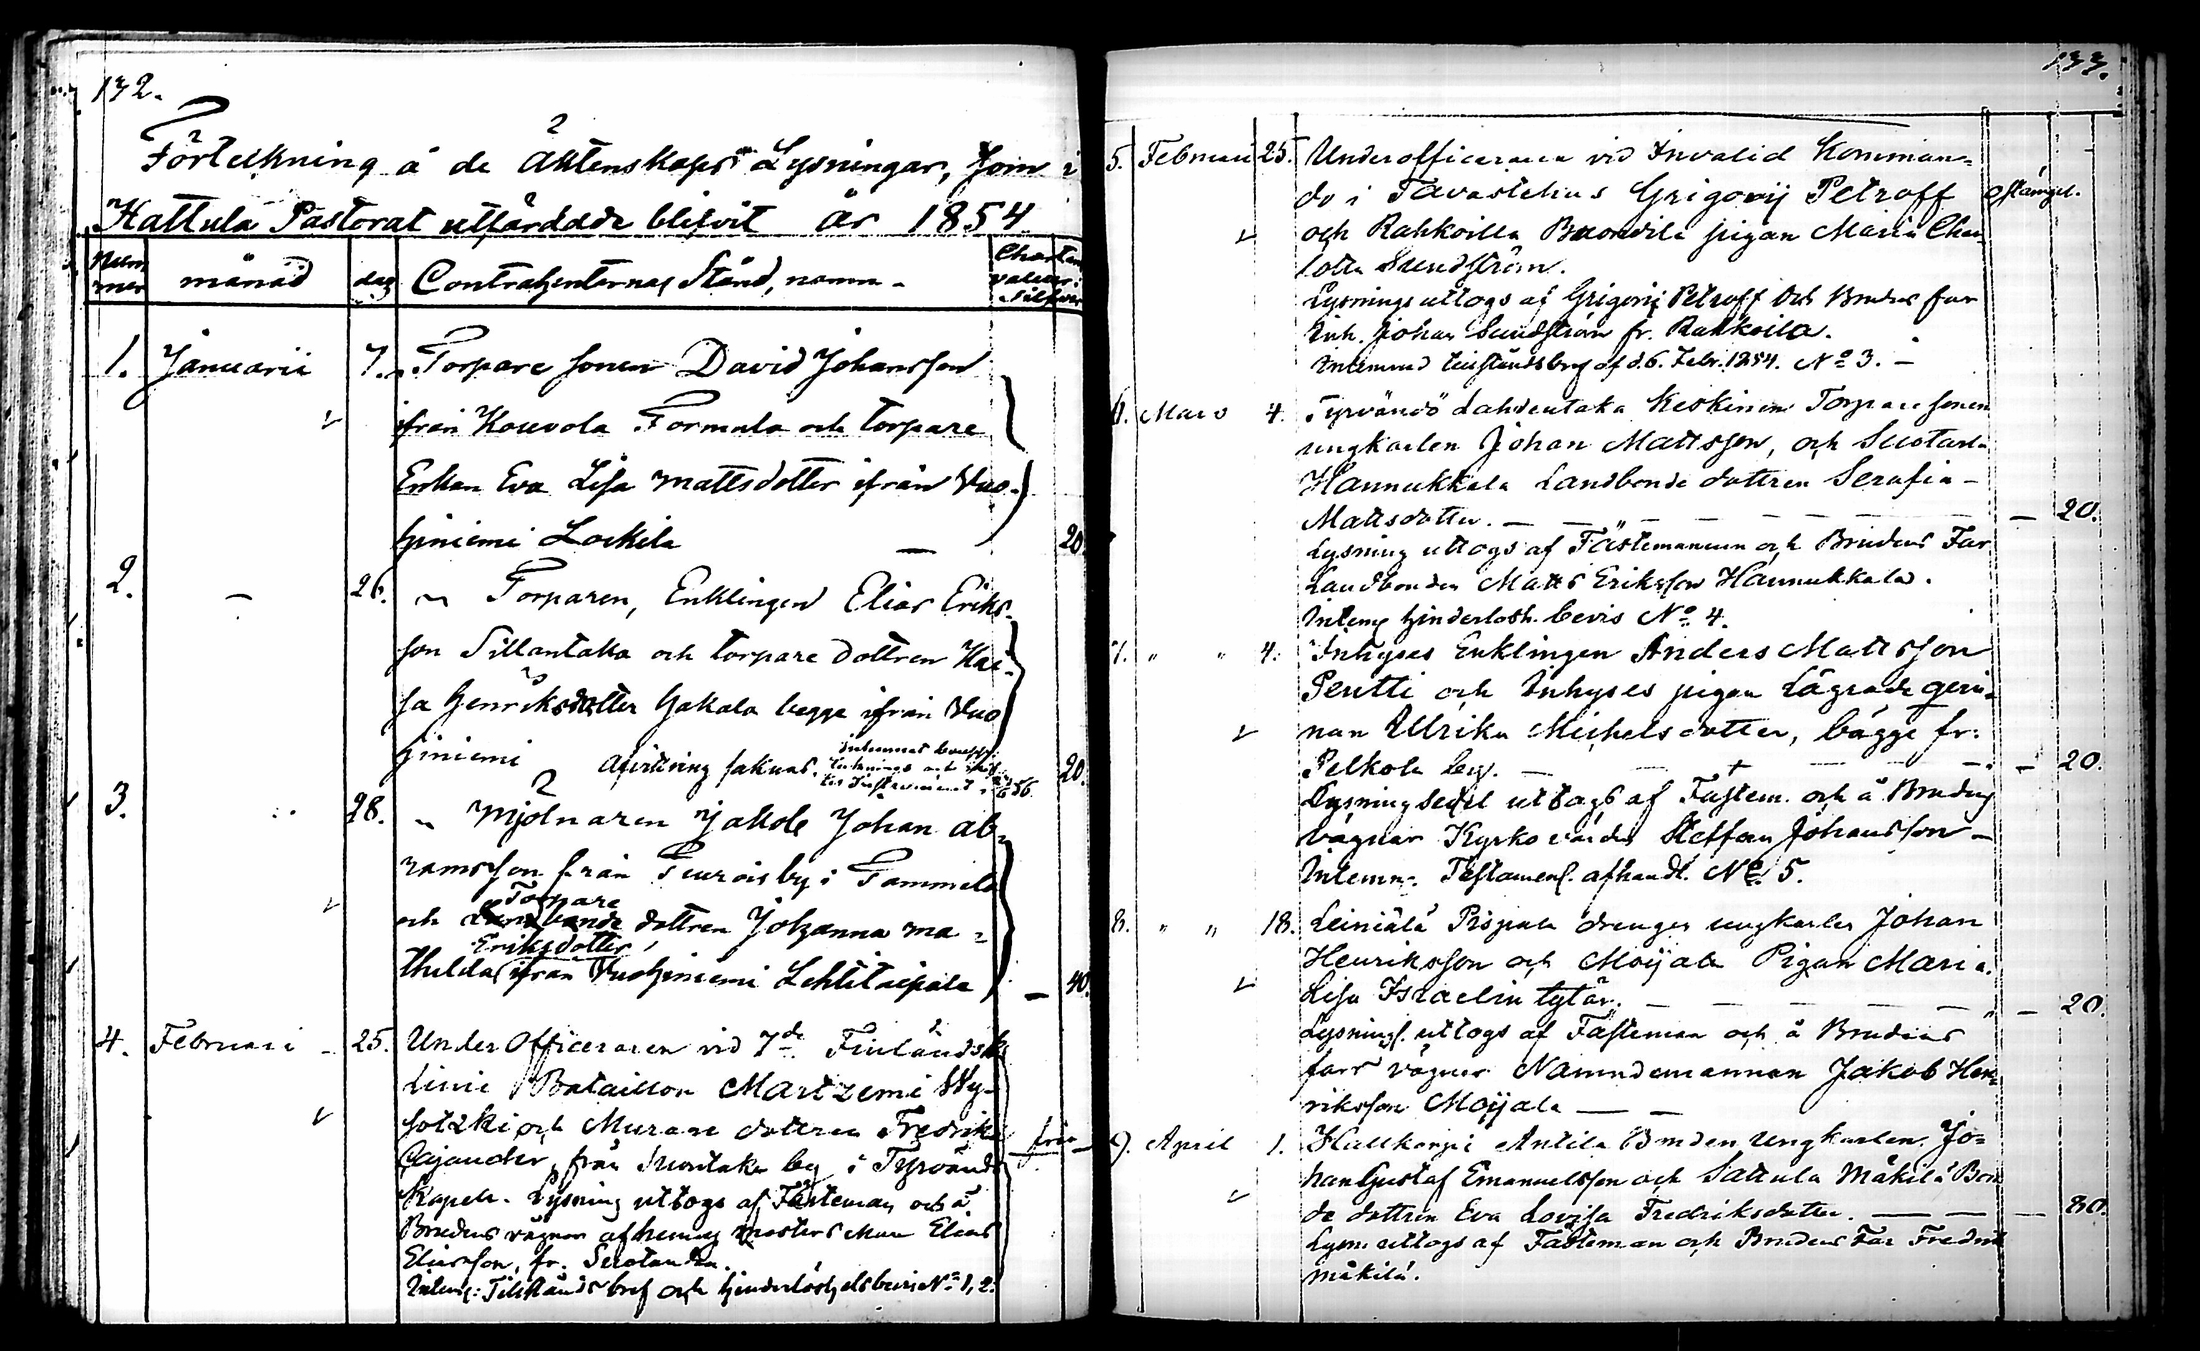 132.
Förteckning å de Äktenskaps Lysningar, som i
Hattula Pastorat utfärdade blifvit år 1854.
Num̄mer månad dag Contrahenternas Stånd, namn - Charta valeur: Silfver
1. Januarii 7. Torpare sonen David Johansson
ifrån Kouvola Formula och torpare
Enkan Eva Lisa Mattsdotter ifrån Vuo-
hiniemi Lockila — 20
2. — 26. Torparen, Enklingen Elias Eriks-
son Sillantaka och torpare dottren Kai-
sa Henriksdotter Yakala begge ifrån Vuo
hiniemi Afvittring saknas. 20.
3. 28. Mjölnaren Jakob Johan Ab-
ramsson från by i Tammela
Torpare
och Landbonde dottren Johanna Ma-
Eriksdotter
thilda ifrån Vuohiniemi Lehtitaipale — 40.
4. Februari - 25. Under Officeraren vid 7de Finländsk
Linie Bataillon Martzemi Wy-
sotzki och Murare dottren Fredrika
Cajander, från by i Tyrvändö
Kapell. Lysning uttogs af Fästeman och å
Brudens vägnar af hennes Mosters Man Elias
Eliasson, fr.
Intemn: Tillstånds bref och hinderlöshetsbevis No 1, 2.
fri
133.
5. Februari 25. Underofficeraren vid Invalid Komman-
do i Tavastehus Grigorij Petroff Stämpel.
och Rahkoila pigan Maria Char-
lotta Sundström.
Lysning uttogs af Grigorij Petroff och Brudens far
Inh. Johan Sundström fr. Rahkoila.
Intemnad tillståndsbref af d. 6. Febr. 1854. No 3. —
6. Mars 4. Tyrväntö Lahdentaka Keskinen Torpare sonen
ungkarlen Johan Mattsson, och
Hannukkala Landbonde dottren Serafia —
Mattsdotter. — — — — 20.
Lysning uttogs af Fästemannen och Brudens Far
Landbonden Matts Eriksson Hannukkala.
Intemn hinderlösh. bevis No 4.
7. " " 4. Inhyses Enklingen Anders Mattsson
Pentti och Inhyses pigan Lägrade qvin-
nan Ulrika Michelsdotter, bägge fr:
Pelkola by. — — — 20.
Lysningsedel uttogs af Fästem. och å Brudens
vägnar Kyrko värden Steffan Johansson —
Intemn: Testament. afhandl. No 5.
8. " " 18. Leiniälä Pispala drengen ungkarlen Johan
Henriksson och Moijala Pigan Maria
Lisa Israelin tytär. — — — 20.
Lysnings. uttogs af Fästeman och å Brudens
fars vägnar Nämndemannen Jakob Hen-
riksson Moijala — —
9. April 1. Antila Bonden Ungkarlen Jo-
han Gustaf Emanuelsson och Sattula Mäkilä Bon
de dottren Eva Lovisa Fredriksdotter. — — — 80.
Lysn: uttogs af Fästeman och Brudens Far Fredrik
Mäkilä.